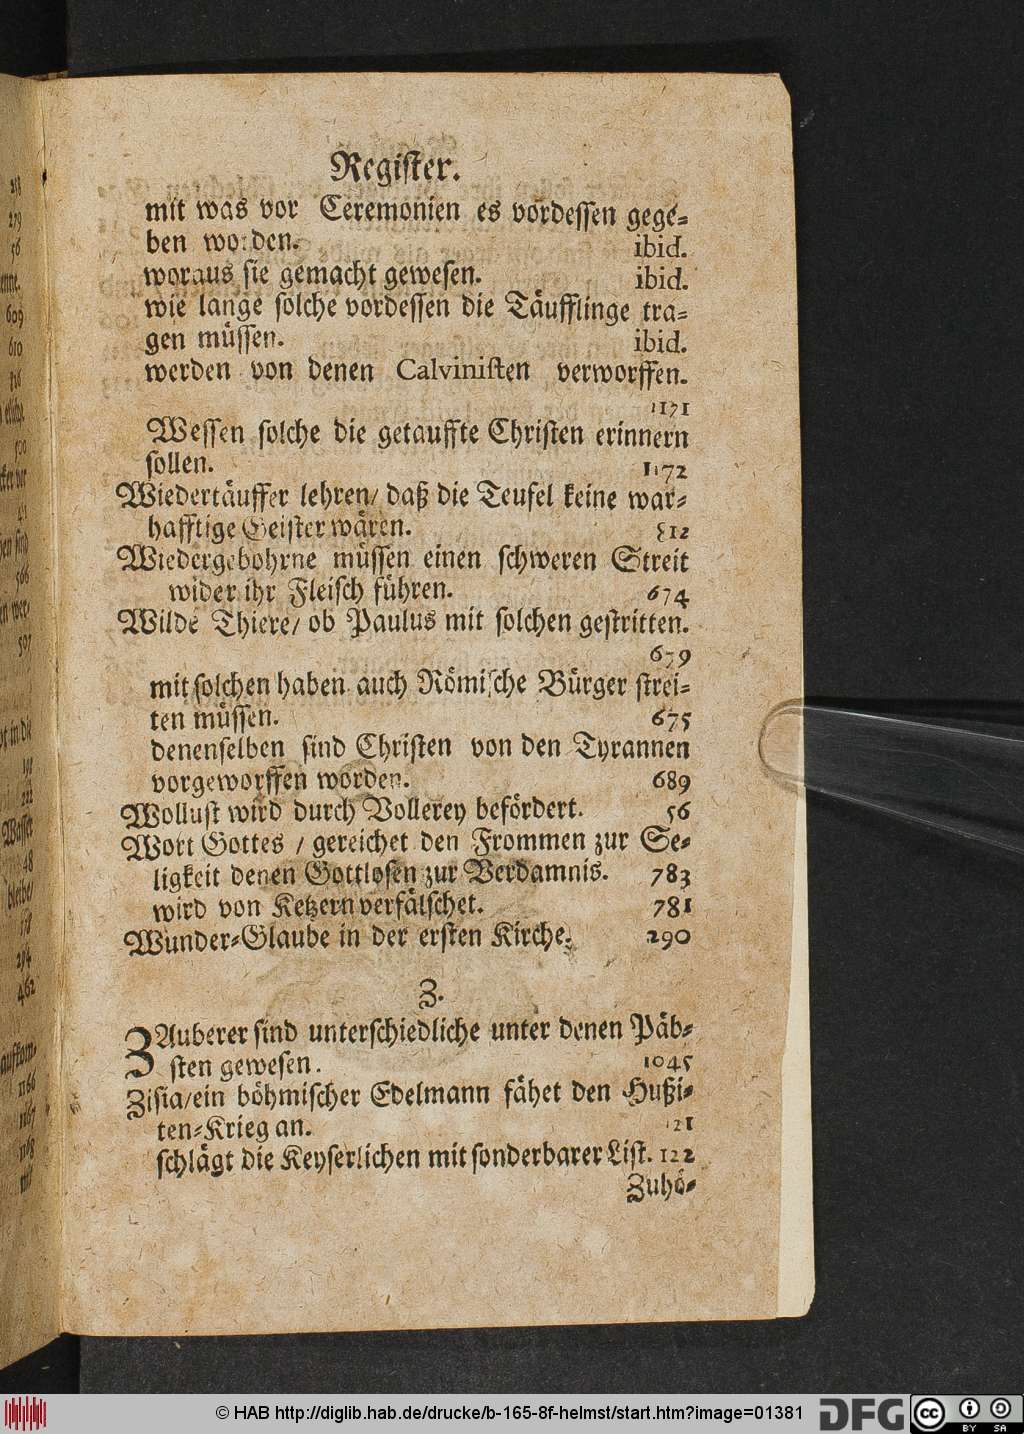 Register.
mit was vor Ceremonien es vordessen gege-
ben worden. ibid.
woraus sie gemacht gewesen. ibid.
wie lange solche vordessen die Täufflinge tra-
gen müssen. ibid.
werden von denen Calvinisten verworffen.
1171
Wessen solche die getauffte Christen erinnern
sollen. 1172
Wiedertäuffer lehren/ daß die Teufel keine war-
hafftige Geister wären. 512
Wiedergebohrne müssen einen schweren Streit
wider ihr Fleisch führen. 674
Wilde Thiere/ ob Paulus mit solchen gestritten.
679
mit solchen haben auch Römische Bürger strei-
ten müssen. 675
denenselben sind Christen von den Tyrannen
vorgeworffen worden. 689
Wollust wird durch Vollerey befördert. 56
Wort Gottes / gereichet den Frommen zur Se-
ligkeit denen Gottlosen zur Verdamnis. 783
wird von Ketzern verfälschet. 781
Wunder-Glaube in der ersten Kirche. 290
Z.
ZAuberer sind unterschiedliche unter denen Päb-
sten gewesen. 1045
Zisia/ein böhmischer Edelmann fähet den Hußi-
ten-Krieg an. 121
schlägt die Keyserlichen mit sonderbarer List. 122
Zuhö-
279
56
609
610
500
566
597
48
294
462
1166
1167
1168
© HAB http://diglib.hab.de/drucke/b-165-8f-helmst/start.htm?image=01381
DFG
cc
BY SA